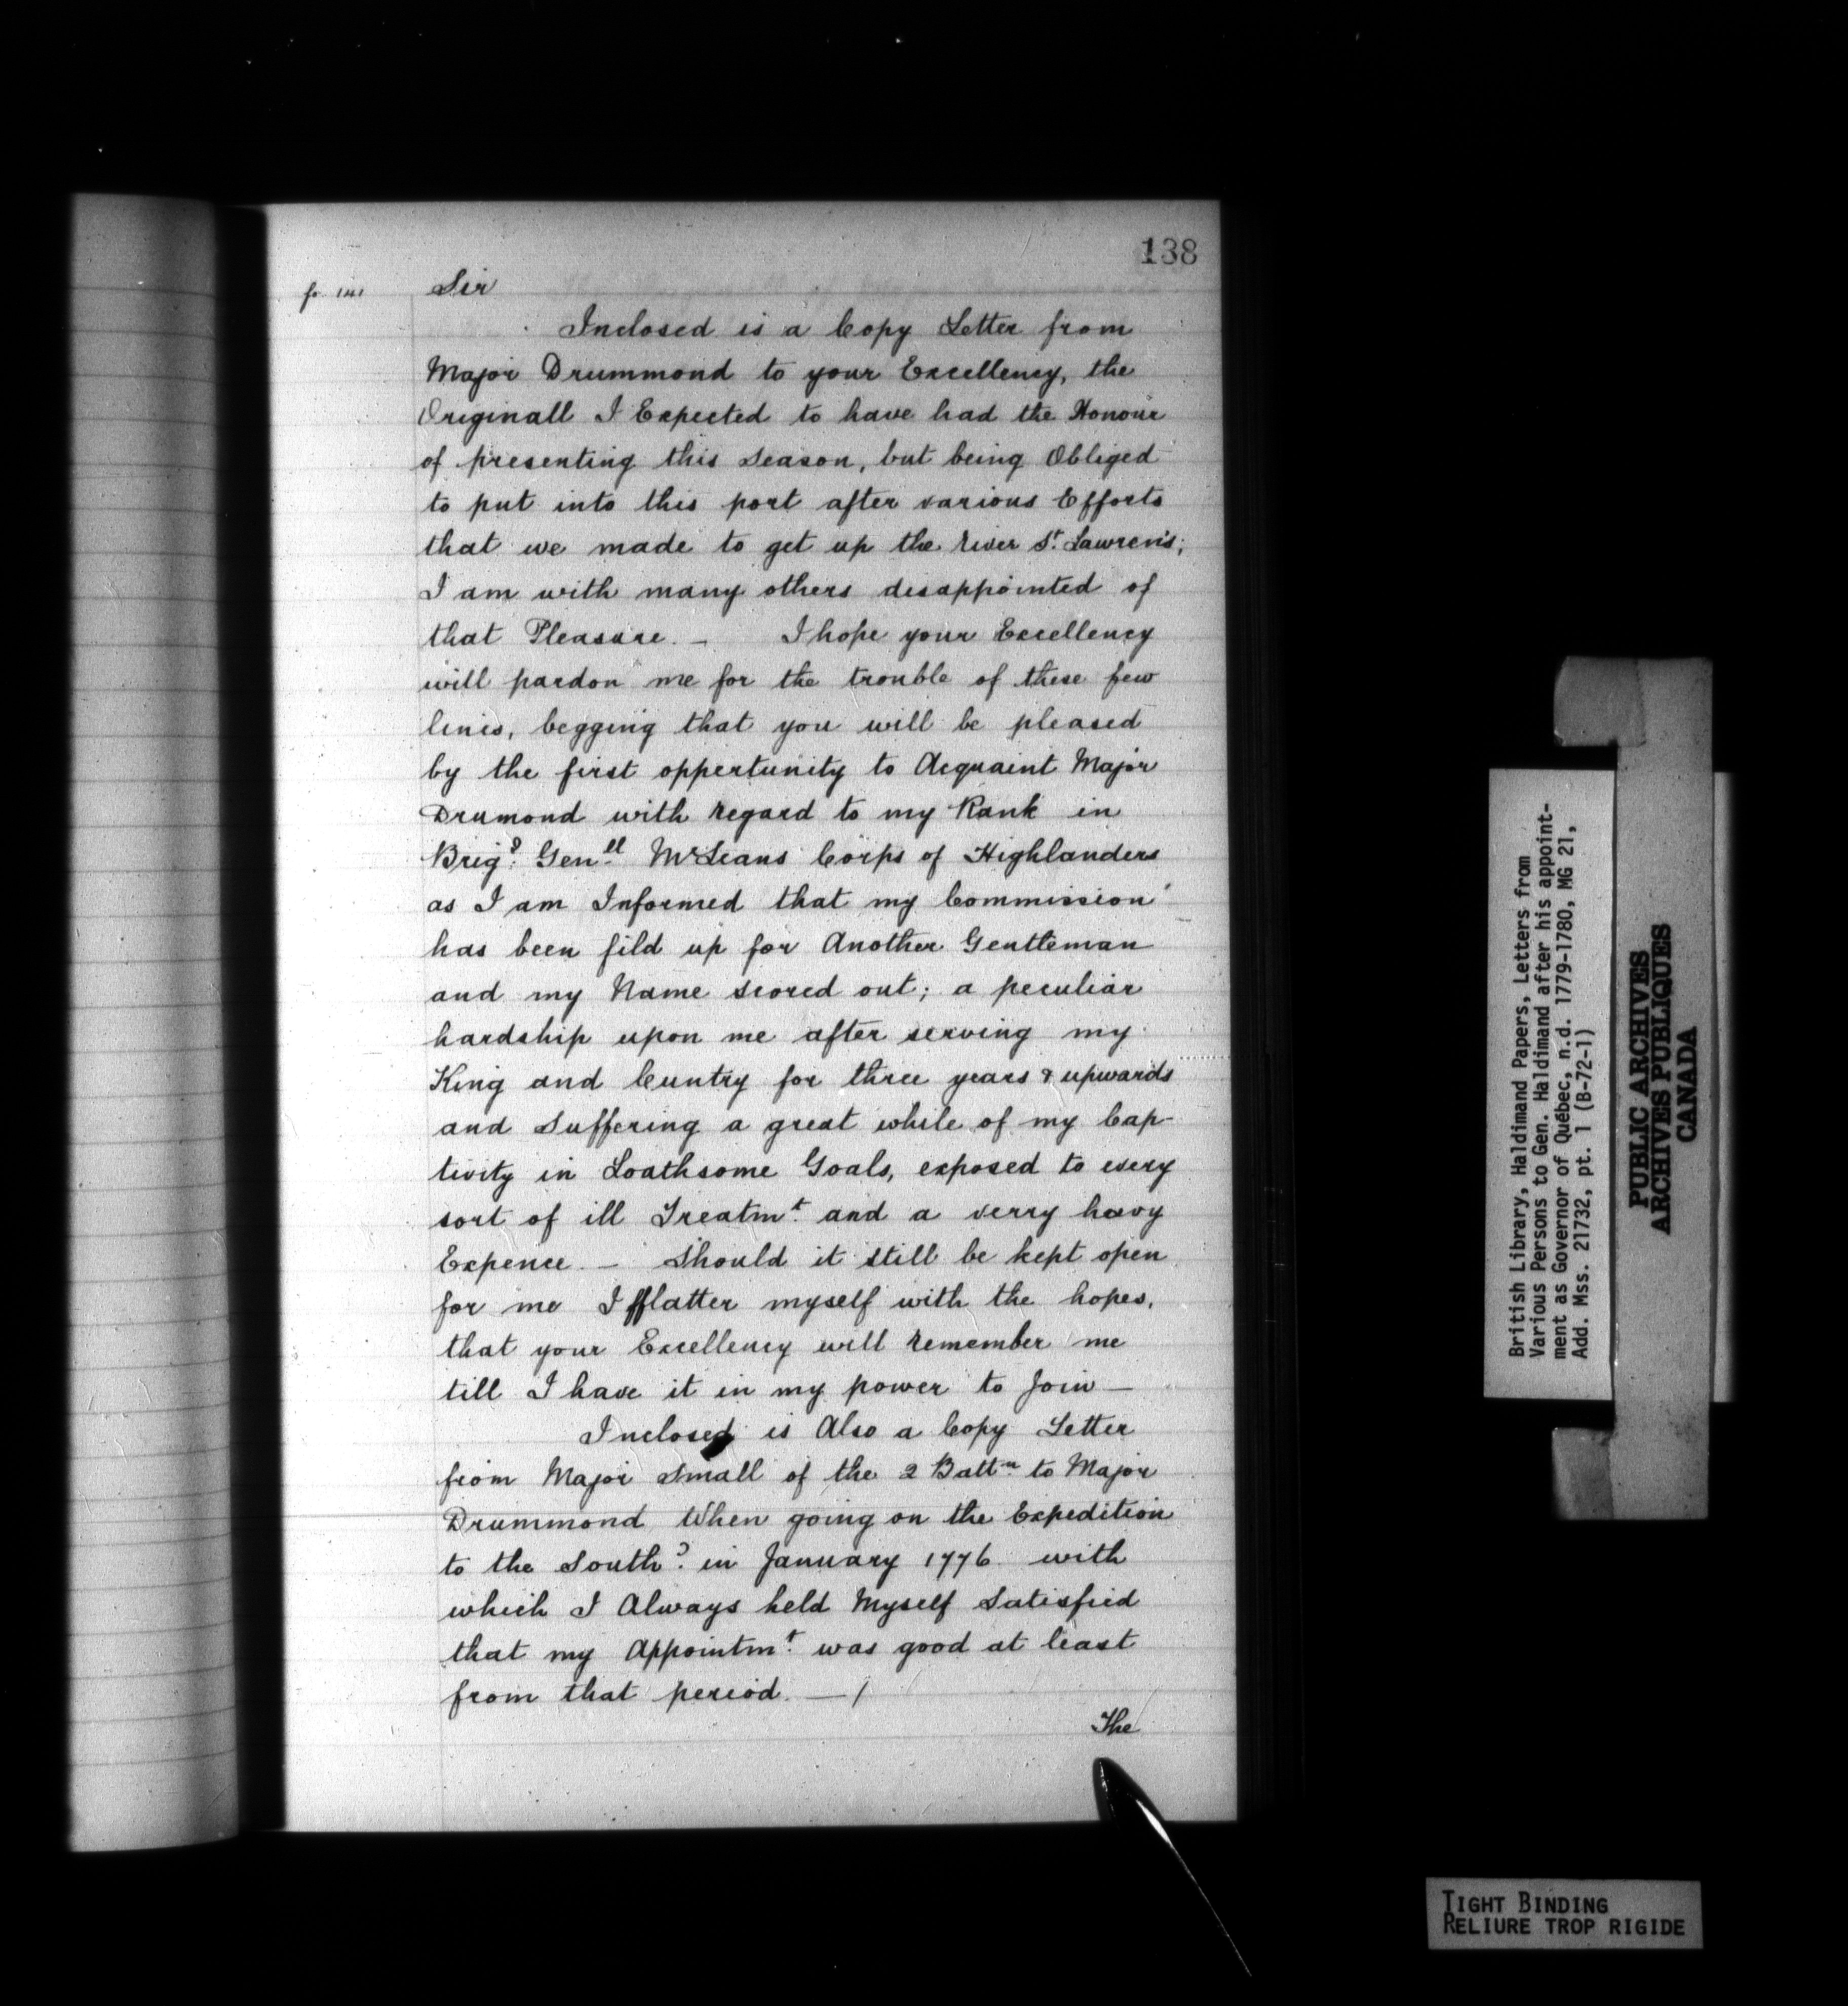 138
fo. 141
Sir
Inclosed is a Copy Letter from
Major Drummond to your Excellency, the
Originall I Expected to have had the Honour
of presenting this Season, but being Obliged
to put into this port after various Efforts
that we made to get up the River St. Lawrens;
I am with many others disappointed of
that Pleasure. — I hope your Excellency
will pardon me for the trouble of these few
lines, begging that you will be pleased
by the first oppertunity to Acquaint Major
Drumond with regard to my Rank in
Brigd. Genll McLeans Corps of Highlanders
as I am Informed that my Commission
has been fild up for Another Gentleman
and my Name scored out; a peculiar
hardship upon me after serving my
King and Cuntry for three years & upwards
and Suffering a great while of my Cap-
tivity in Loathsome Goals, exposed to every
sort of ill Treatmt. and a verry heavy
Expence. — Should it still be kept open
for me I fflatter myself with the hopes,
that your Excellency will remember me
till I have it in my power to Join —
Inclosed is Also a Copy Letter
from Major Small of the 2 Battn to Major
Drummond When going on the Expedition
to the Southd. in January 1776 with
which I Always held Myself Satisfied
that my Appointmt. was good at least
from that period. — /
The
British Library, Haldimand Papers, Letters from
Various Persons to Gen. Haldimand after his appoint-
ment as Governor of Québec, n.d. 1779-1780, MG 21,
Add. Mss. 21732, pt. 1 (B-72-1)
PUBLIC ARCHIVES
ARCHIVES PUBLIQUES
CANADA
TIGHT BINDING
RELIURE TROP RIGIDE